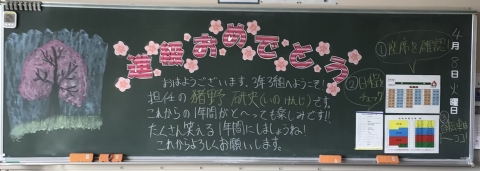 進級おめでとう
おはようございます。3年3組へようこそ!
担任の猪野 研史(いの けんじ)です。
これからの1年間がとーっても楽しみです!!
たくさん笑える1年間にしましょうね!
これからよろしくお願いします。
①座席を確認
②日程を
チェック
4月8日火曜日